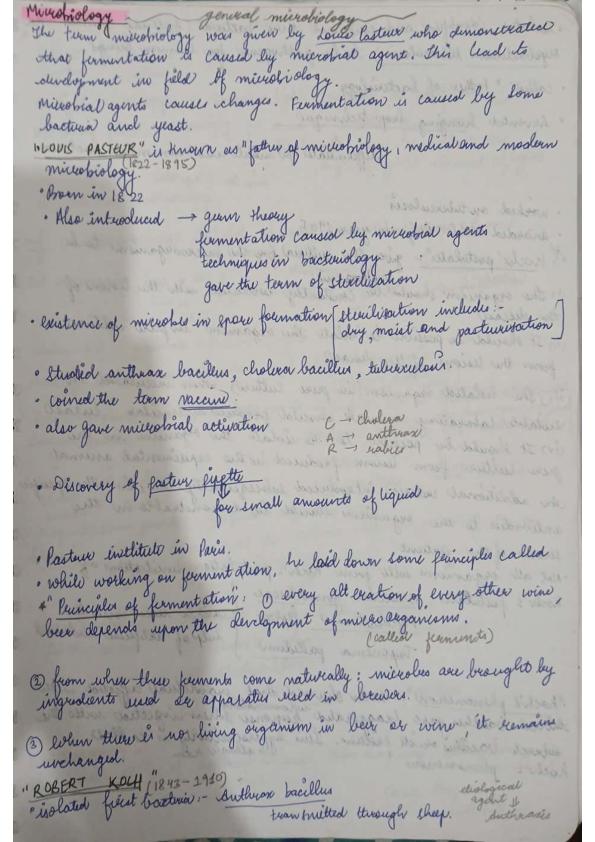 Microbiology general microbiology
The term microbiology was given by Louis Pasteur who demonstrated
that fermentation is caused by microbial agent. This lead to
development in field of microbiology.
Microbial agents causes changes. Fermentation is caused by some
bacteria and yeast.
"LOUIS PASTEUR" is known as "father of microbiology, medical and modern
microbiology. (1822-1895)
• Born in 1822
• Also introduced → germ theory
fermentation caused by microbial agents
techniques in bacteriology
gave the term of sterilisation
• existence of microbes in spore formation [sterilisation include:-
dry, moist and pasteurisation]
• Studied anthrax bacillus, cholera bacillus, tuberculous.
• coined the term vaccine.
• also gave microbial activation
C → cholera
A → anthrax
R → rabies
• Discovery of pasteur pipette
↓
for small amounts of liquid
• Pasteur institute in Paris.
• while working on fermentation, he laid down some principles called
* "Principles of fermentation": ① every alteration of every other wine,
beer depends upon the development of microorganisms.
(called ferments)
② from where these ferments come naturally: microbes are brought by
ingredients used or apparatus used in brewers.
③ when there is no living organism in beer or wine, it remains
unchanged.
"ROBERT KOCH" (1843-1910)
"isolated first bacteria:- Anthrax bacillus
transmitted through sheep.
etiological
agent
↓
Anthraxis